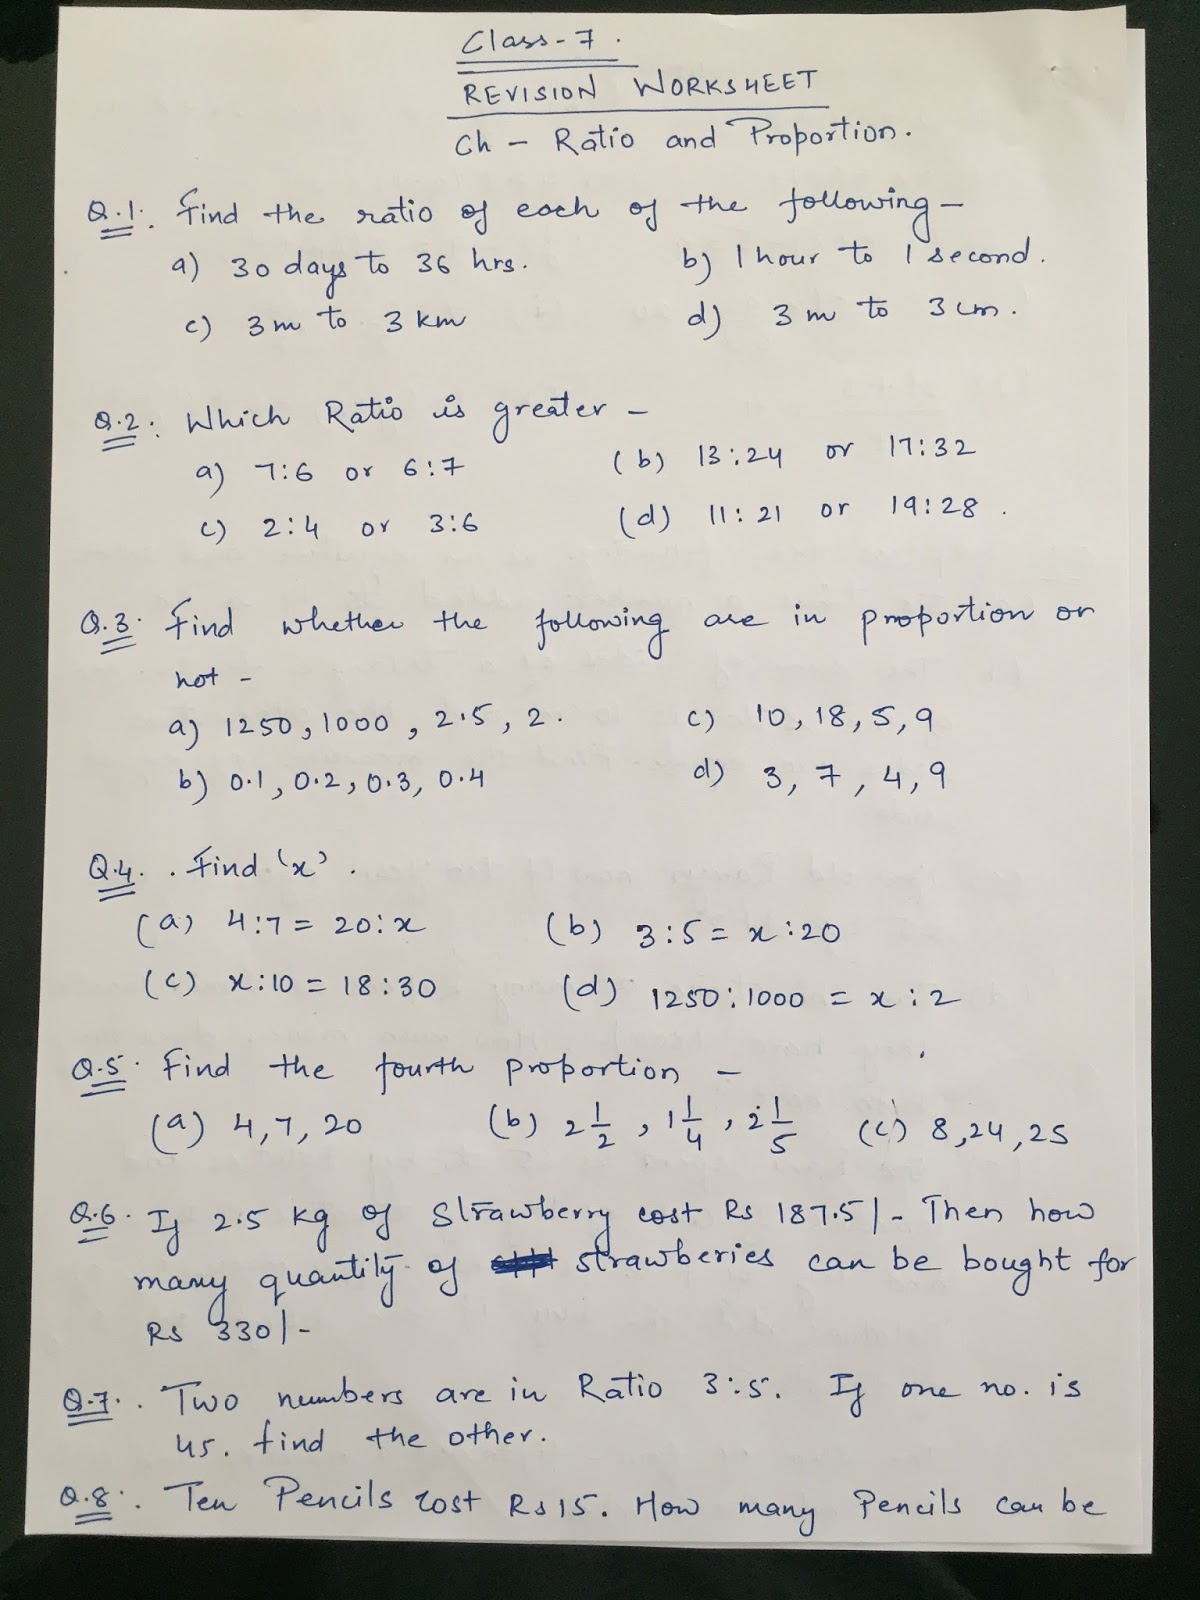 Class-7.
REVISION WORKSHEET
Ch - Ratio and Proportion.
Q.1: Find the ratio of each of the following-
a) 30 days to 36 hrs. b) 1 hour to 1 second.
c) 3m to 3 km d) 3 m to 3 cm.
Q.2: Which Ratio is greater -
a) 7:6 or 6:7 (b) 13:24 or 17:32
c) 2:4 or 3:6 (d) 11:21 or 19:28.
Q.3. Find whether the following are in proportion or
not -
a) 1250, 1000, 2.5, 2. c) 10, 18, 5, 9
b) 0.1, 0.2, 0.3, 0.4 d) 3, 7, 4, 9
Q.4. . Find 'x'.
(a) 4:7 = 20:x (b) 3:5 = x:20
(c) x:10 = 18:30 (d) 1250:1000 = x:2
Q.5. Find the fourth proportion -
(a) 4, 7, 20 (b) 2 1/2, 1 1/4, 2 1/5 (c) 8, 24, 25
Q.6. If 2.5 kg of Strawberry cost Rs 187.5/- Then how
many quantity of strawberies can be bought for
Rs 330/-
Q.7. . Two numbers are in Ratio 3:5. If one no. is
45. find the other.
Q.8. . Ten Pencils cost Rs 15. How many Pencils can be